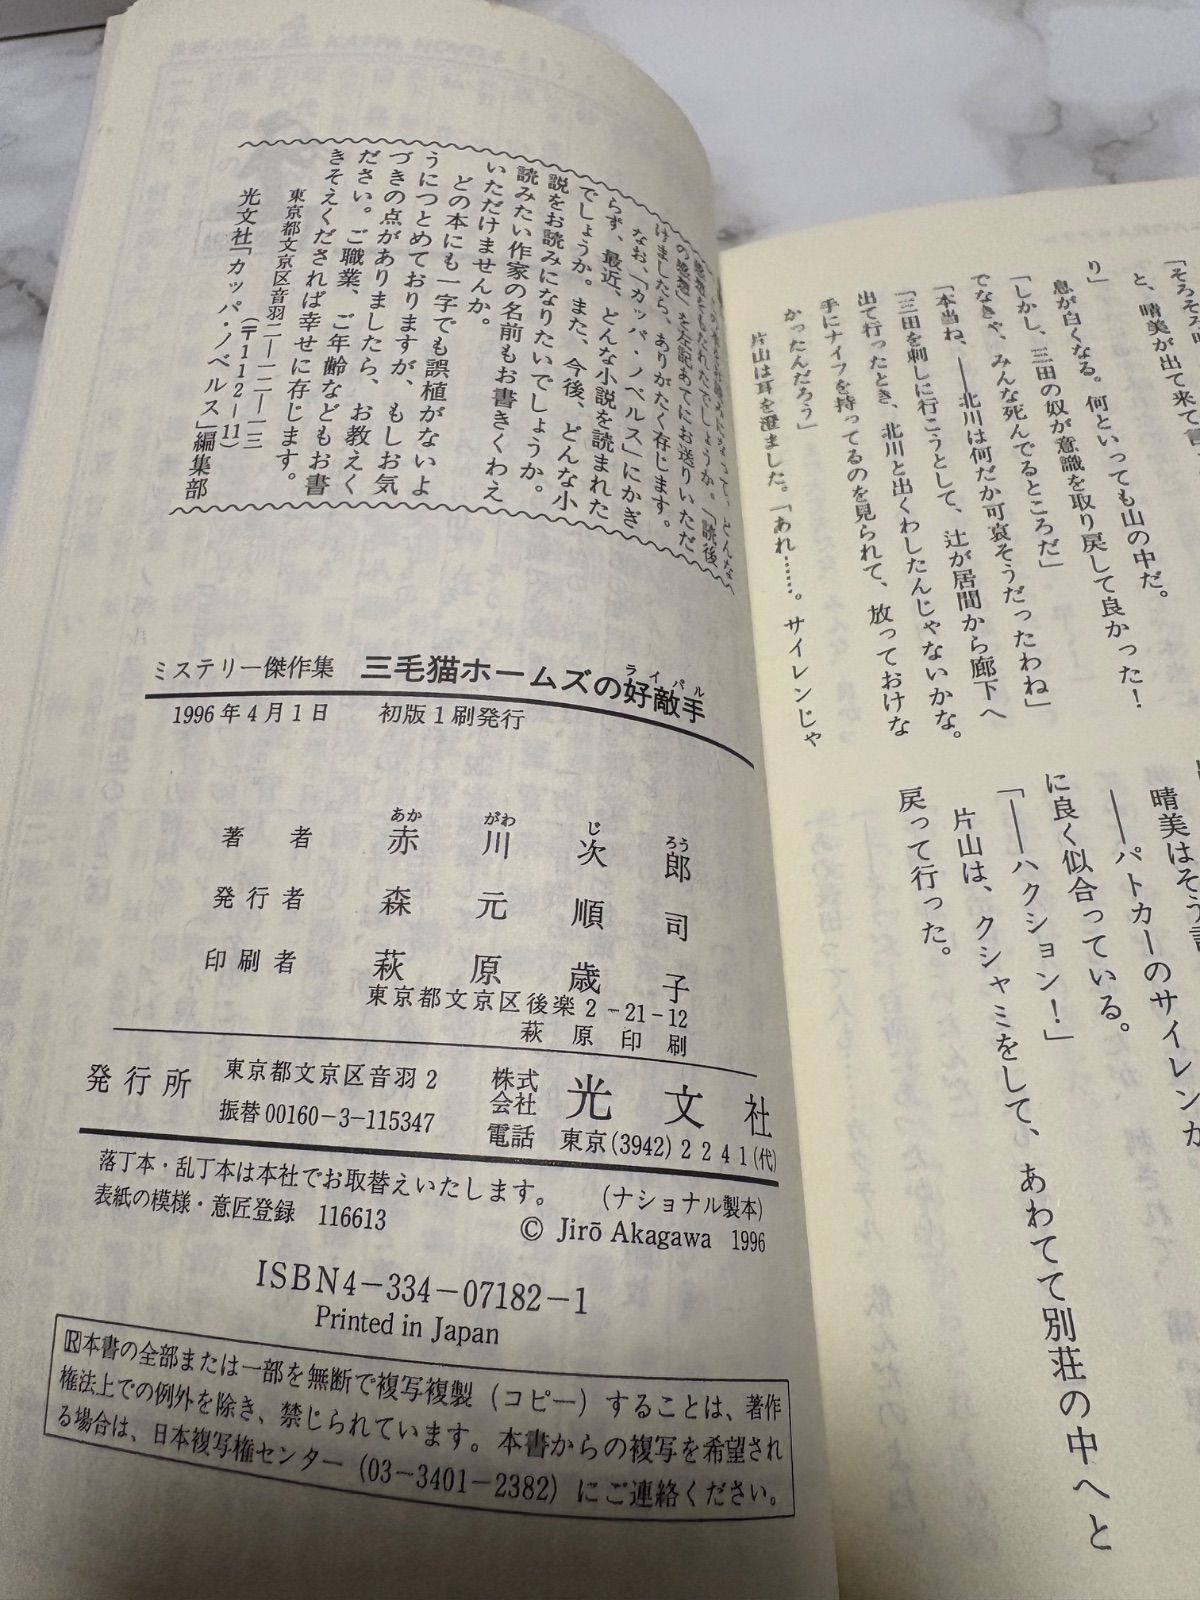 「そろそろ
と、晴美が出て来て言
り」
息が白くなる。何といっても山の中だ。
「しかし、三田の奴が意識を取り戻して良かった！
でなきゃ、みんな死んでるところだ」
「本当ね、――北川は何だか可哀そうだったわね」
「三田を刺しに行こうとして、辻が居間から廊下へ
出て行ったとき、北川と出くわしたんじゃないかな。
手にナイフを持ってるのを見られて、放っておけな
かったんだろう」
片山は耳を澄ました。「あれ……。サイレンじゃ
晴美はそう言
――パトカーのサイレンが
に良く似合っている。
「――ハクション！」
片山は、クシャミをして、あわてて別荘の中へと
戻って行った。
の感想」を左記あてにお送りいただ
けましたら、ありがたく存じます。
なお、「カッパ・ノベルス」にかぎ
らず、最近、どんな小説を読まれた
でしょうか。また、今後、どんな小
説をお読みになりたいでしょうか。
読みたい作家の名前もお書きくわえ
いただけませんか。
どの本にも一字でも誤植がないよ
うにつとめておりますが、もしお気
づきの点がありましたら、お教えく
ださい。ご職業、ご年齢などもお書
きそえくだされば幸せに存じます。
東京都文京区音羽二―一二―一三
(〒112-11)
光文社「カッパ・ノベルス」編集部
ミステリー傑作集 三毛猫ホームズの好敵手
ライバル
1996年4月1日 初版1刷発行
あか がわ じ ろう
著者 赤川次郎
発行者 森元順司
印刷者 萩原歳子
東京都文京区後楽2-21-12
萩原印刷
発行所 東京都文京区音羽2 株式会社 光文社
振替00160-3-115347 電話 東京(3942)2241(代)
落丁本・乱丁本は本社でお取替えいたします。 (ナショナル製本)
表紙の模様・意匠登録 116613 © Jirō Akagawa 1996
ISBN4-334-07182-1
Printed in Japan
Ⓡ本書の全部または一部を無断で複写複製（コピー）することは、著作
権法上での例外を除き、禁じられています。本書からの複写を希望され
る場合は、日本複写権センター（03-3401-2382）にご連絡ください。